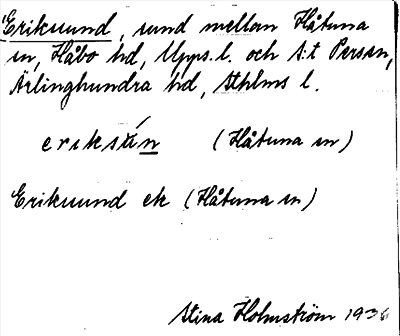 Eriksund, sund mellan Håtuna
sn, Håbo hd, Upps. l. och S:t Perssn,
Ärlinghundra hd, Sthlms l.
eriksún (Håtuna sn)
Eriksund ek (Håtuna sn)
Stina Holmström 1936